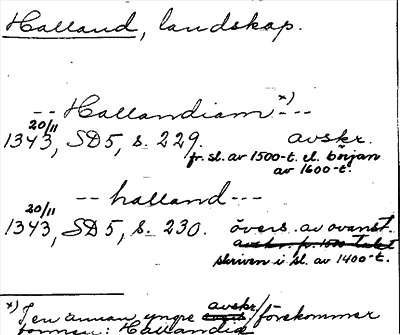 Halland, landskap.
-- Hallandiam x) --
20/11
1343, SD5, s. 229. avskr.
fr. sl. av 1500-t. el. början
av 1600-t.
-- halland --
20/11
1343, SD5, s. 230. övers. av ovanst.
avskr. fr. 1500 talet
skriven i sl. av 1400-t.
x) I en annan yngre avskr. förekommer
formen: Hallandia